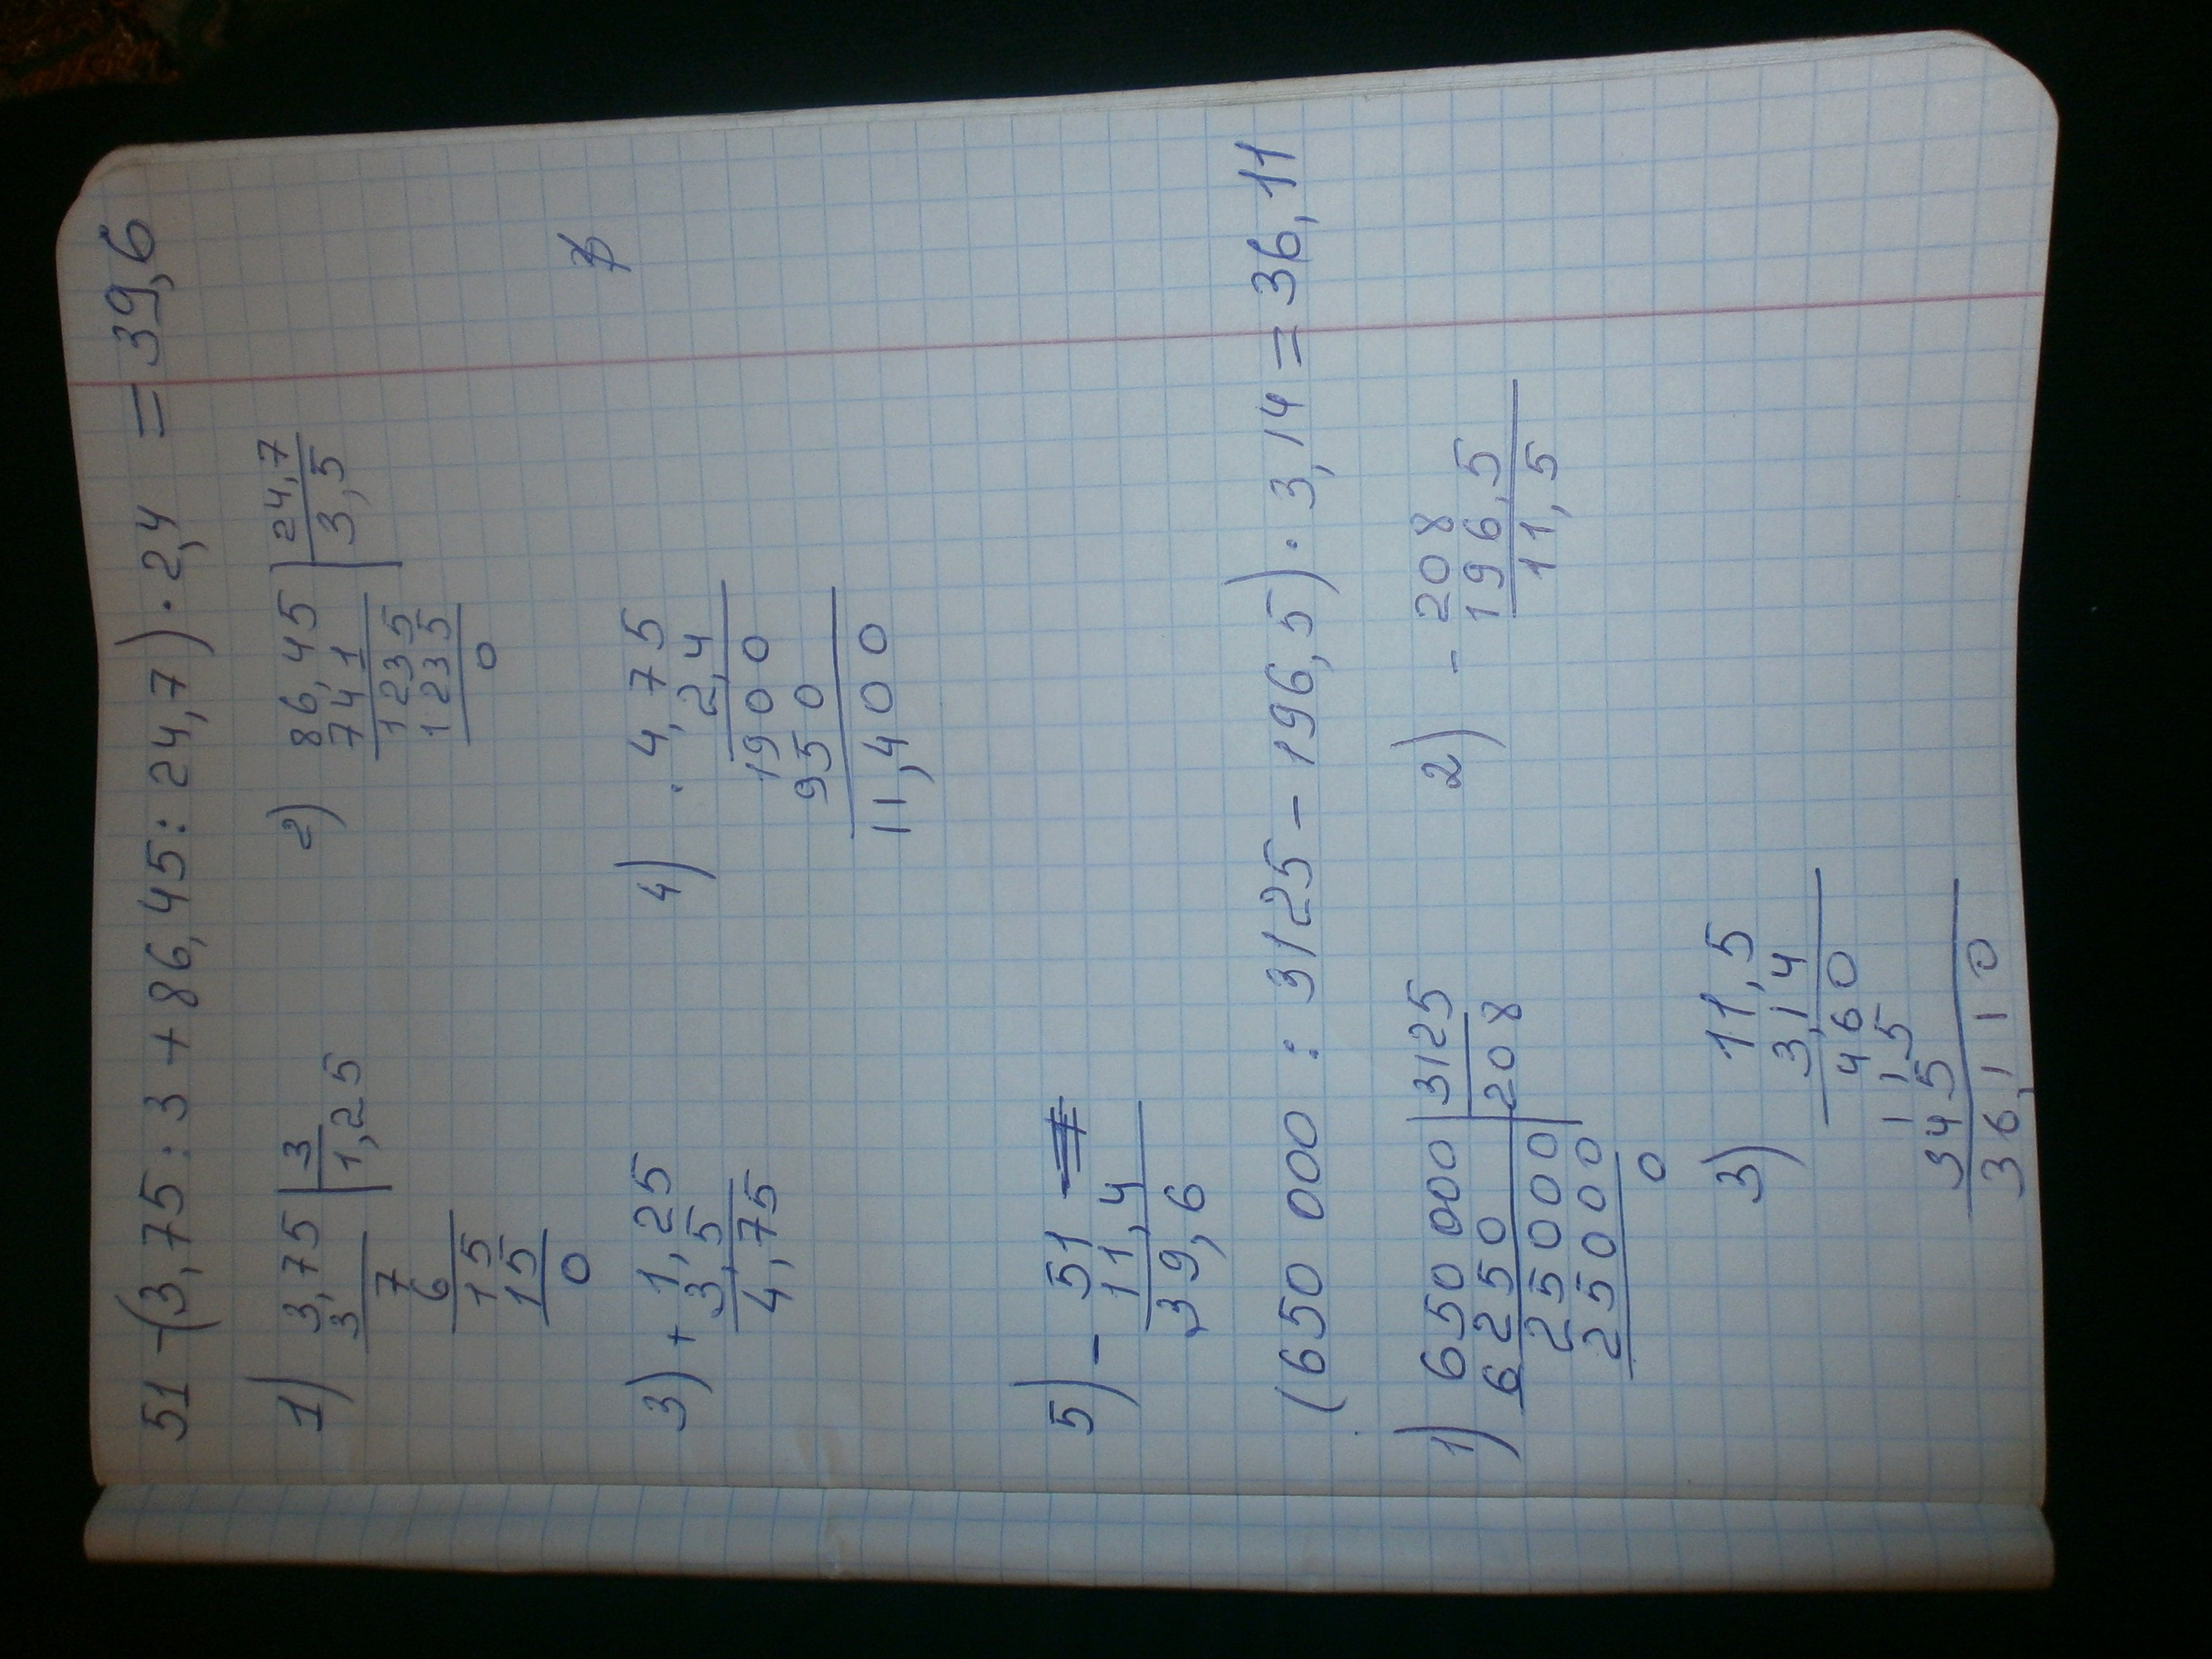 51 - (3,75 : 3 + 86,45 : 24,7) · 2,4 = 39,6
1) 3,75 | 3
3 | 1,25
7
6
15
15
0
2) 86,45 | 24,7
74,1 | 3,5
1235
1235
0
3) + 1,25
3,5
4,75
4) · 4,75
2,4
1900
950
11,400
5) - 51
11,4
39,6
(650 000 : 3125 - 196,5) · 3,14 = 36,11
1) 650 000 | 3125
6250 | 208
25000
25000
0
2) - 208
196,5
11,5
3) 11,5
3,14
460
115
345
36,110